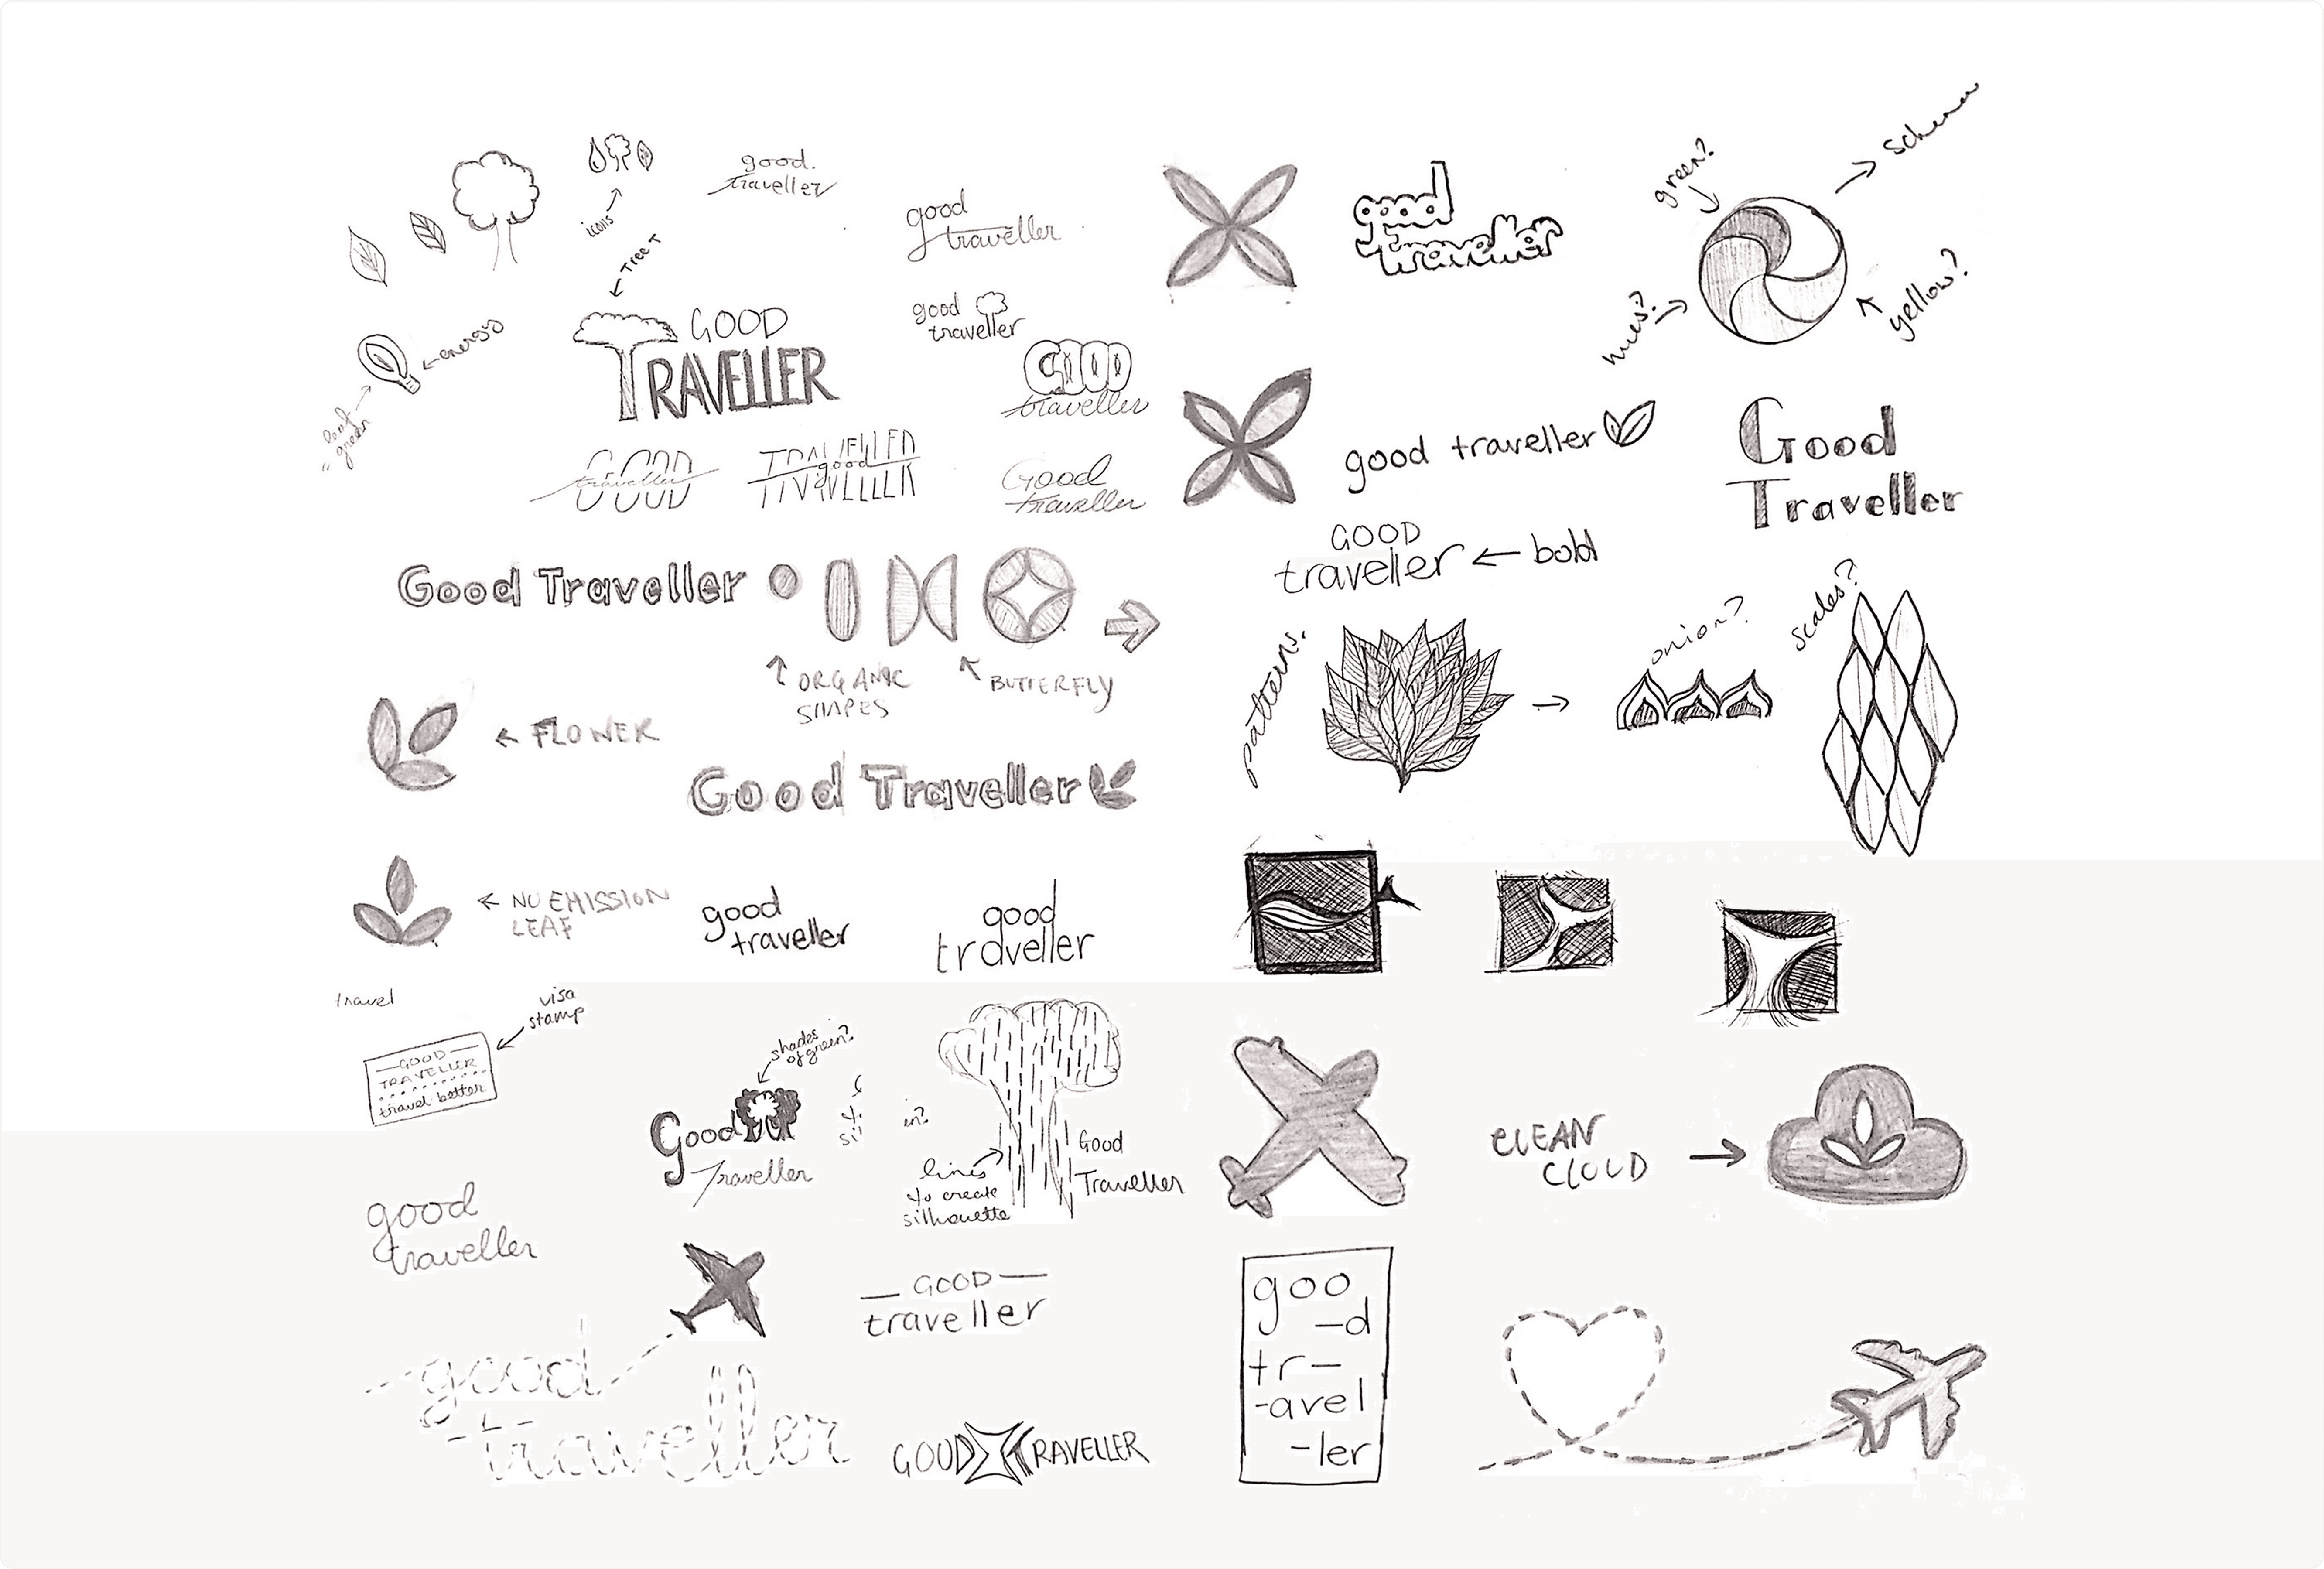 icons
good.
traveller
good
traveller
Tree-T
GOOD
TRAVELLER
good
traveller
GOOD
traveller
energy
leaf
green
GOOD
traveller
TRAVELLER
good
Good
traveller
Good Traveller
ORGANIC
SHAPES
BUTTERFLY
FLOWER
Good Traveller
NO EMISSION
LEAF
good
traveller
good
traveller
travel
visa
stamp
GOOD
TRAVELLER
travel better
shades
of green?
Good
Traveller
lines
to create
silhouette
Good
Traveller
good
traveller
GOOD
traveller
good
traveller
GOOD TRAVELLER
good
traveller
green?
yellow?
good traveller
Good
Traveller
GOOD
traveller
bold
pattern.
onion?
scales?
CLEAN
CLOUD
goo
-d
tr-
-avel
-ler